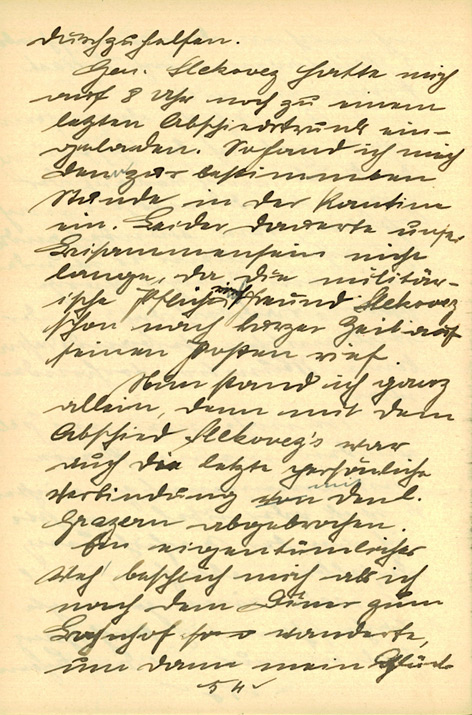 durchzuhelfen.
Gen. Slekovez hatte mich
auf 8 Uhr noch zu einem
letzten Abschiedstrunk ein-
geladen. So fand ich mich
denn zur bestimmten
Stunde in der Kantine
ein. Leider dauerte unser
Beisammensein nicht
lange, da die militär-
ische Pflicht Freund Slekovez
schon nach kurzer Zeit auf
seinen Posten rief.
Nun stand ich ganz
allein, denn mit dem
Abschied Slekovez's war
auch die letzte persönliche
Verbindung mit den l.
Grazern abgebrochen.
Ein eigentümliches
Weh beschlich mich als ich
nach dem Diner zum
Bahnhof wanderte,
um dann mein Glück
54